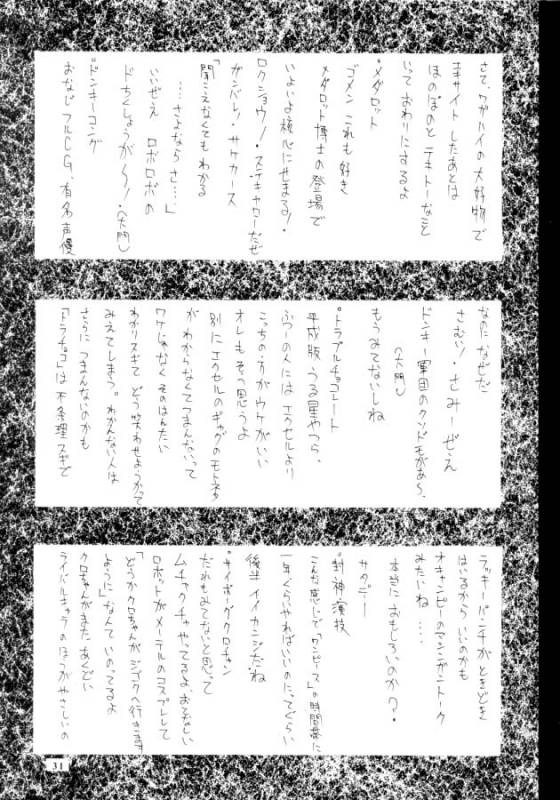 さて、ワガハイの大好物で
キサイトしたあとは
ほのぼのと テキトーなこと
いっておわりにするよ
°メダロット
ゴメン これも好き
メダロット博士の登場で
いよいよ核心にせまる!
ロクショウ!・ステキャローだぜ
ガンバレ!・サケカース
「聞こえなくてもわかる
……さよなら さ……」
いいぜえ ロボロボの
ドちくしょうが〜!・(大門)
°ドンキーコング
おなじ フルCG、有名声優
なのに なぜだ
さむい!・さみーぜえ
ドンキー軍団のクソドモがあ〜、
(大門)
もうみてないしね
°トラブルチョコレート
平成版、うる星やつら、
ふつーの人には エクセルより
こっちの方がウケがいい
オレもそう思うよ
別に エクセルのギャグのモトネタ
が わかんなくてつまんないって
ワケじゃなく そのはんたい
わかりスギて どう笑わせようかって
みえてしまう。わかんない人は
さらに つまんないのかも
「トラチョコ」は 不条理スギで
ラッキーパンチが ときどき
はいるから いいのかも
オキャンピーのマシンガントーク
みたいね……
本当に おもしろいのか??・
サタデー
°封神演技
こんな感じで「ワンピース」の時間帯に
一年ぐらいやればいいのに、ってぐらい
後半 イイカンジだね
°サイボーグクロチャン
だれもみてないと思って
ムチャクチャやってるよ、おそろしい
ロボットがメーテルのコスプレして
「どうかクロちゃんが ジゴクへ行きます
ように」なんて いのってるよ
クロちゃんがまた あくどい
ライバルキャラのほうがやさしいの
31